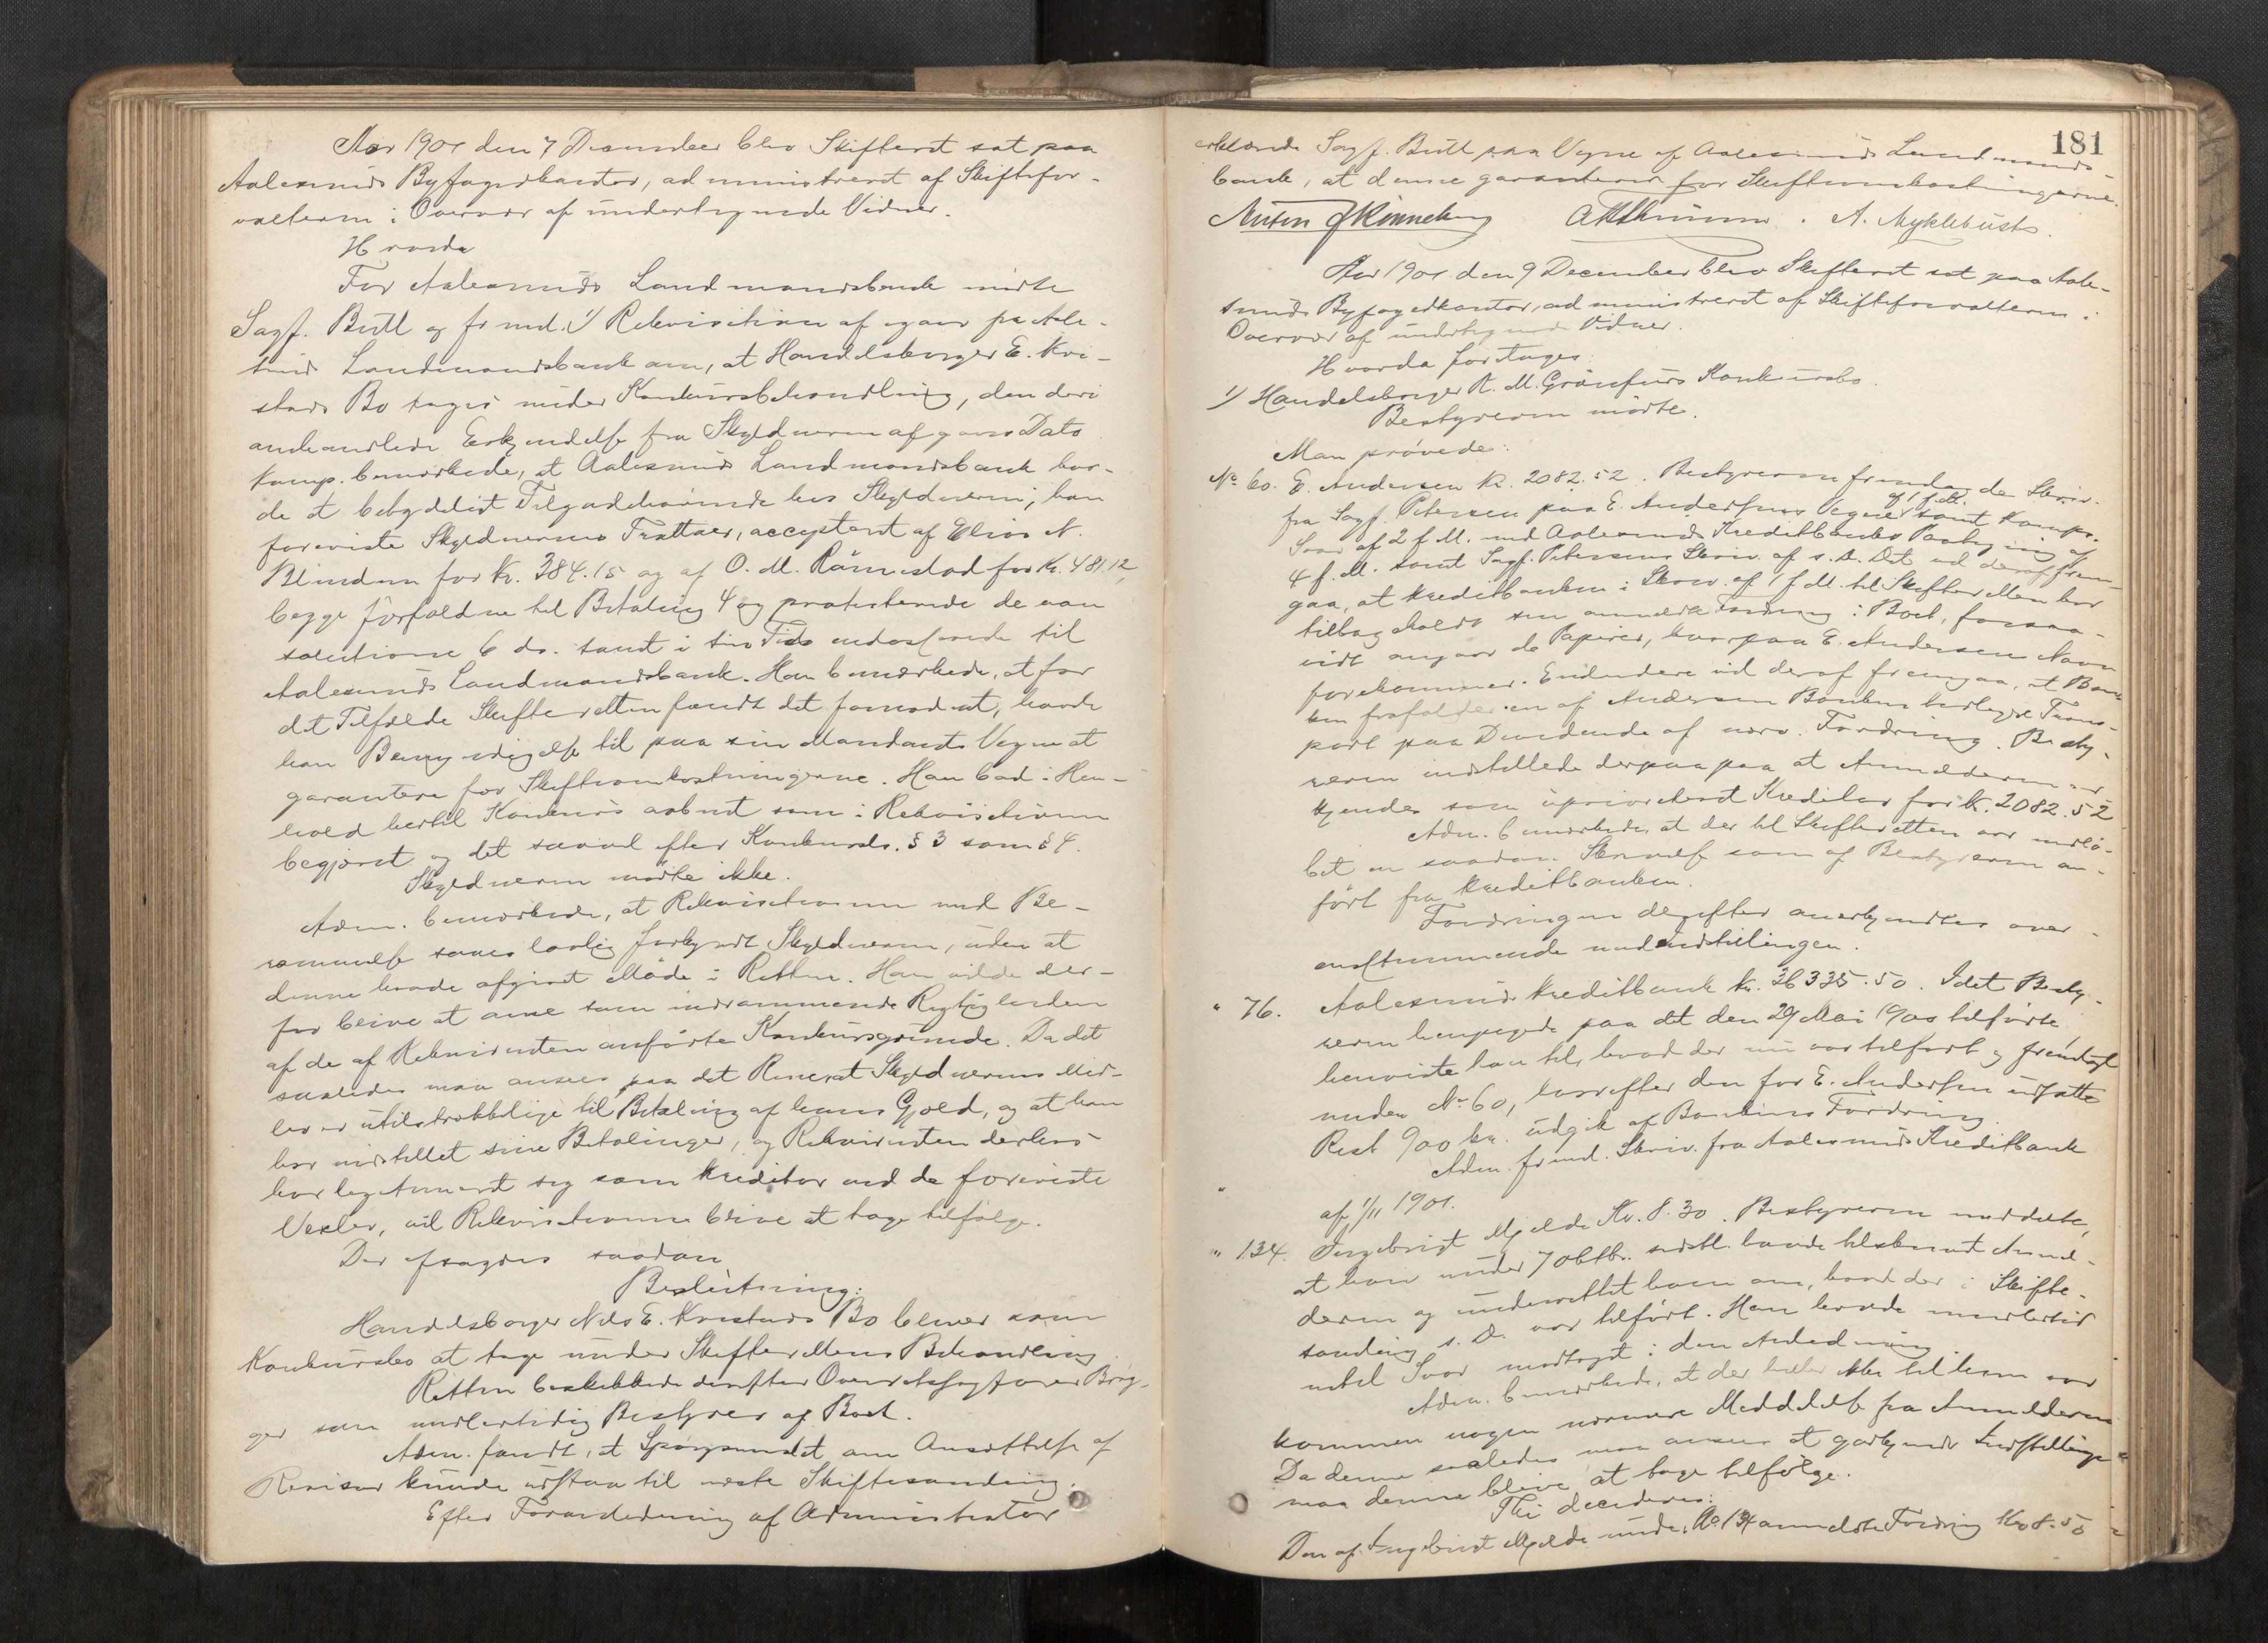 Aar 1901 den 7 December blev Skifteret sat paa
Aalesunds Byfogedkontor, administreret af Skiftefor-
valteren i Overvær af undertegnede Vidner.
Hvorda
For Aalesunds Landmandsbank mødte
Sagf. Bull og freml. 1) Rekvisition af igaar fra Aale-
sunds Landmandsbank om, at Handelsborger E. Kvi-
stads Bo tages under Konkursbehandling, den deri
omhandlede Erkjendelse fra Skyldneren af gaars Dato.
Komp. bemærkede, at Aalesunds Landmandsbank hav-
de et betydeligt Tilgodehavende hos Skyldneren; han
foreviste Skyldnerens Tratter, accepteret af Elias N.
Blindum for Kr. 384.15 og af O. M. Rämestad for Kr. 481.12,
begge forfaldne til Betaling 4 og protesterede de non
solutione 6 ds. samt i sin Tid endosserede til
Aalesunds Landmandsbank. Han bemærkede, at for
det Tilfælde Skifteretten fandt det fornødent, havde
han Bemyndigelse til paa sin Mandants Vegne at
garantere for Skifteomkostningerne. Han bad i Hen-
hold hertil Konkurs aabnet som i Rekvisitionen
begjæret og det saavel efter Konkursls. § 3 som § 4.
Skyldneren mødte ikke.
Adm. bemærkede, at Rekvisitionen med Be-
rammelse sees lovlig forkyndt Skyldneren, uden at
denne havde afgivet Møde i Retten. Han vilde der-
for blive at anse som indrømmende Rigtigheden
af de af Rekvirenten anførte Konkursgrunde. Da det
saaledes maa ansees paa det Rene, at Skyldnerens Mid-
ler er utilstrækkelige til Betaling af hans Gjæld, og at han
har indstillet sine Betalinger, og Rekvirenten derhos
har legitimeret sig som Kreditor ved de foreviste
Vexler, vil Rekvisitionen blive at tage tilfølge.
Der afsagdes saadan
Beslutning:
Handelsborger Nils E. Kvistads Bo bliver som
Konkursbo at tage under Skifterettens Behandling.
Retten beskikkede derefter Overretssagfører Brøg-
ger som midlertidig Bestyrer af Boet.
Adm. fandt, at Spørgsmaalet om Ansættelse af
Revisor kunde udstaa til næste Skiftesamling.
Efter Foranledning af Administrator
181
erklærede Sagf. Bull paa Vegne af Aalesunds Landmands-
bank, at denne garanterer for Skifteomkostningerne.
A. Myklebust.
Aar 1901 den 9 December blev Skifteret sat paa Aale-
sunds Byfogedkontor, administreret af Skifteforvalteren i
Overvær af undertegnede Vidner.
Hvorda foretages:
1) Handelsborger K. M. Grønfurs Konkursbo.
Bestyreren mødte.
Man prøvede:
No. 60. E. Andersen Kr. 2082.52. Bestyreren fremlagde Skriv.
fra Sagf. Petersen paa E. Andersens Vegne af 1 f. M. samt Komps.
Svar af 2 f. M. med Aalesunds Kreditbanks Paategning af
4 f. M. samt Sagf. Petersens Skriv. af s. D. Det vil deraf frem-
gaa, at Kreditbanken i Skriv. af 1 f. M. til Skifteretten har
tilbagekaldt sin anmeldte Fordring i Boet, forsaa-
vidt angaar de Papirer, hvorpaa E. Andersens Navn
forekommer. Endvidere vil deraf fremgaa, at Ban-
ken frafalder en af Andersen Banken meddelt Trans-
port paa Dividende af nærv. Fordring. Besty-
reren indstillede derpaa paa at Anmelderen er-
kjendes som uprioriteret Kreditor for Kr. 2082.52
Adm. bemærkede, at der til Skifteretten var indlø-
bet en saadan Skrivelse som af Bestyreren an-
ført fra Kreditbanken.
Fordringen derefter anerkjendtes over-
ensstemmende med Indstillingen.
" 76. Aalesunds Kreditbank Kr. 36335.50. Idet Besty-
reren henpegede paa det den 29 Mai 1900 tilførte
henviste han til, hvad der nu var tilført og fremlagt
under No 60, hvorefter den for E. Andersen udsatte
Rest 900 kr. udgik af Bankens Fordring.
Adm. freml. Skriv. fra Aalesunds Kreditbank
af 1/11 1901.
" 134. Ingebrigt Mjelde Kr. 8.30. Bestyreren meddelte,
at han under 7 oktbr. sidstl. havde tilskrevet Anmel-
deren og underrettet ham om, hvad der i Skifte-
samling s. D. var tilført. Han havde imidlertid
intet Svar modtaget i den Anledning.
Adm. bemærkede, at der heller ikke til ham var
kommen nogen nærmere Meddelelse fra Anmelderen
Da denne saaledes maa ansees at godkjende Indstillingen
maa denne blive at tage tilfølge.
Thi decideres:
Den af Ingebrigt Mjelde under No. 134 anmeldte Fordring Kr. 8.50